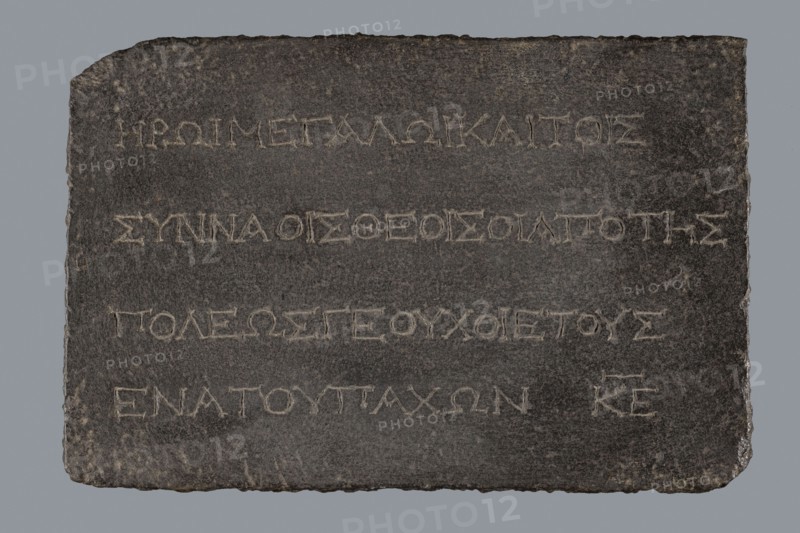 ΗΡΩΙΜΕΓΑΛΩΙΚΑΙΤΟΙΣ
ΣΥΝΝΑΟΙΣΘΕΟΙΣΟΙΑΠΟΤΗΣ
ΠΟΛΕΩΣΓΕΟΥΧΟΙΕΤΟΥΣ
ΕΝΑΤΟΥΠΑΧΩΝ ΚΕ